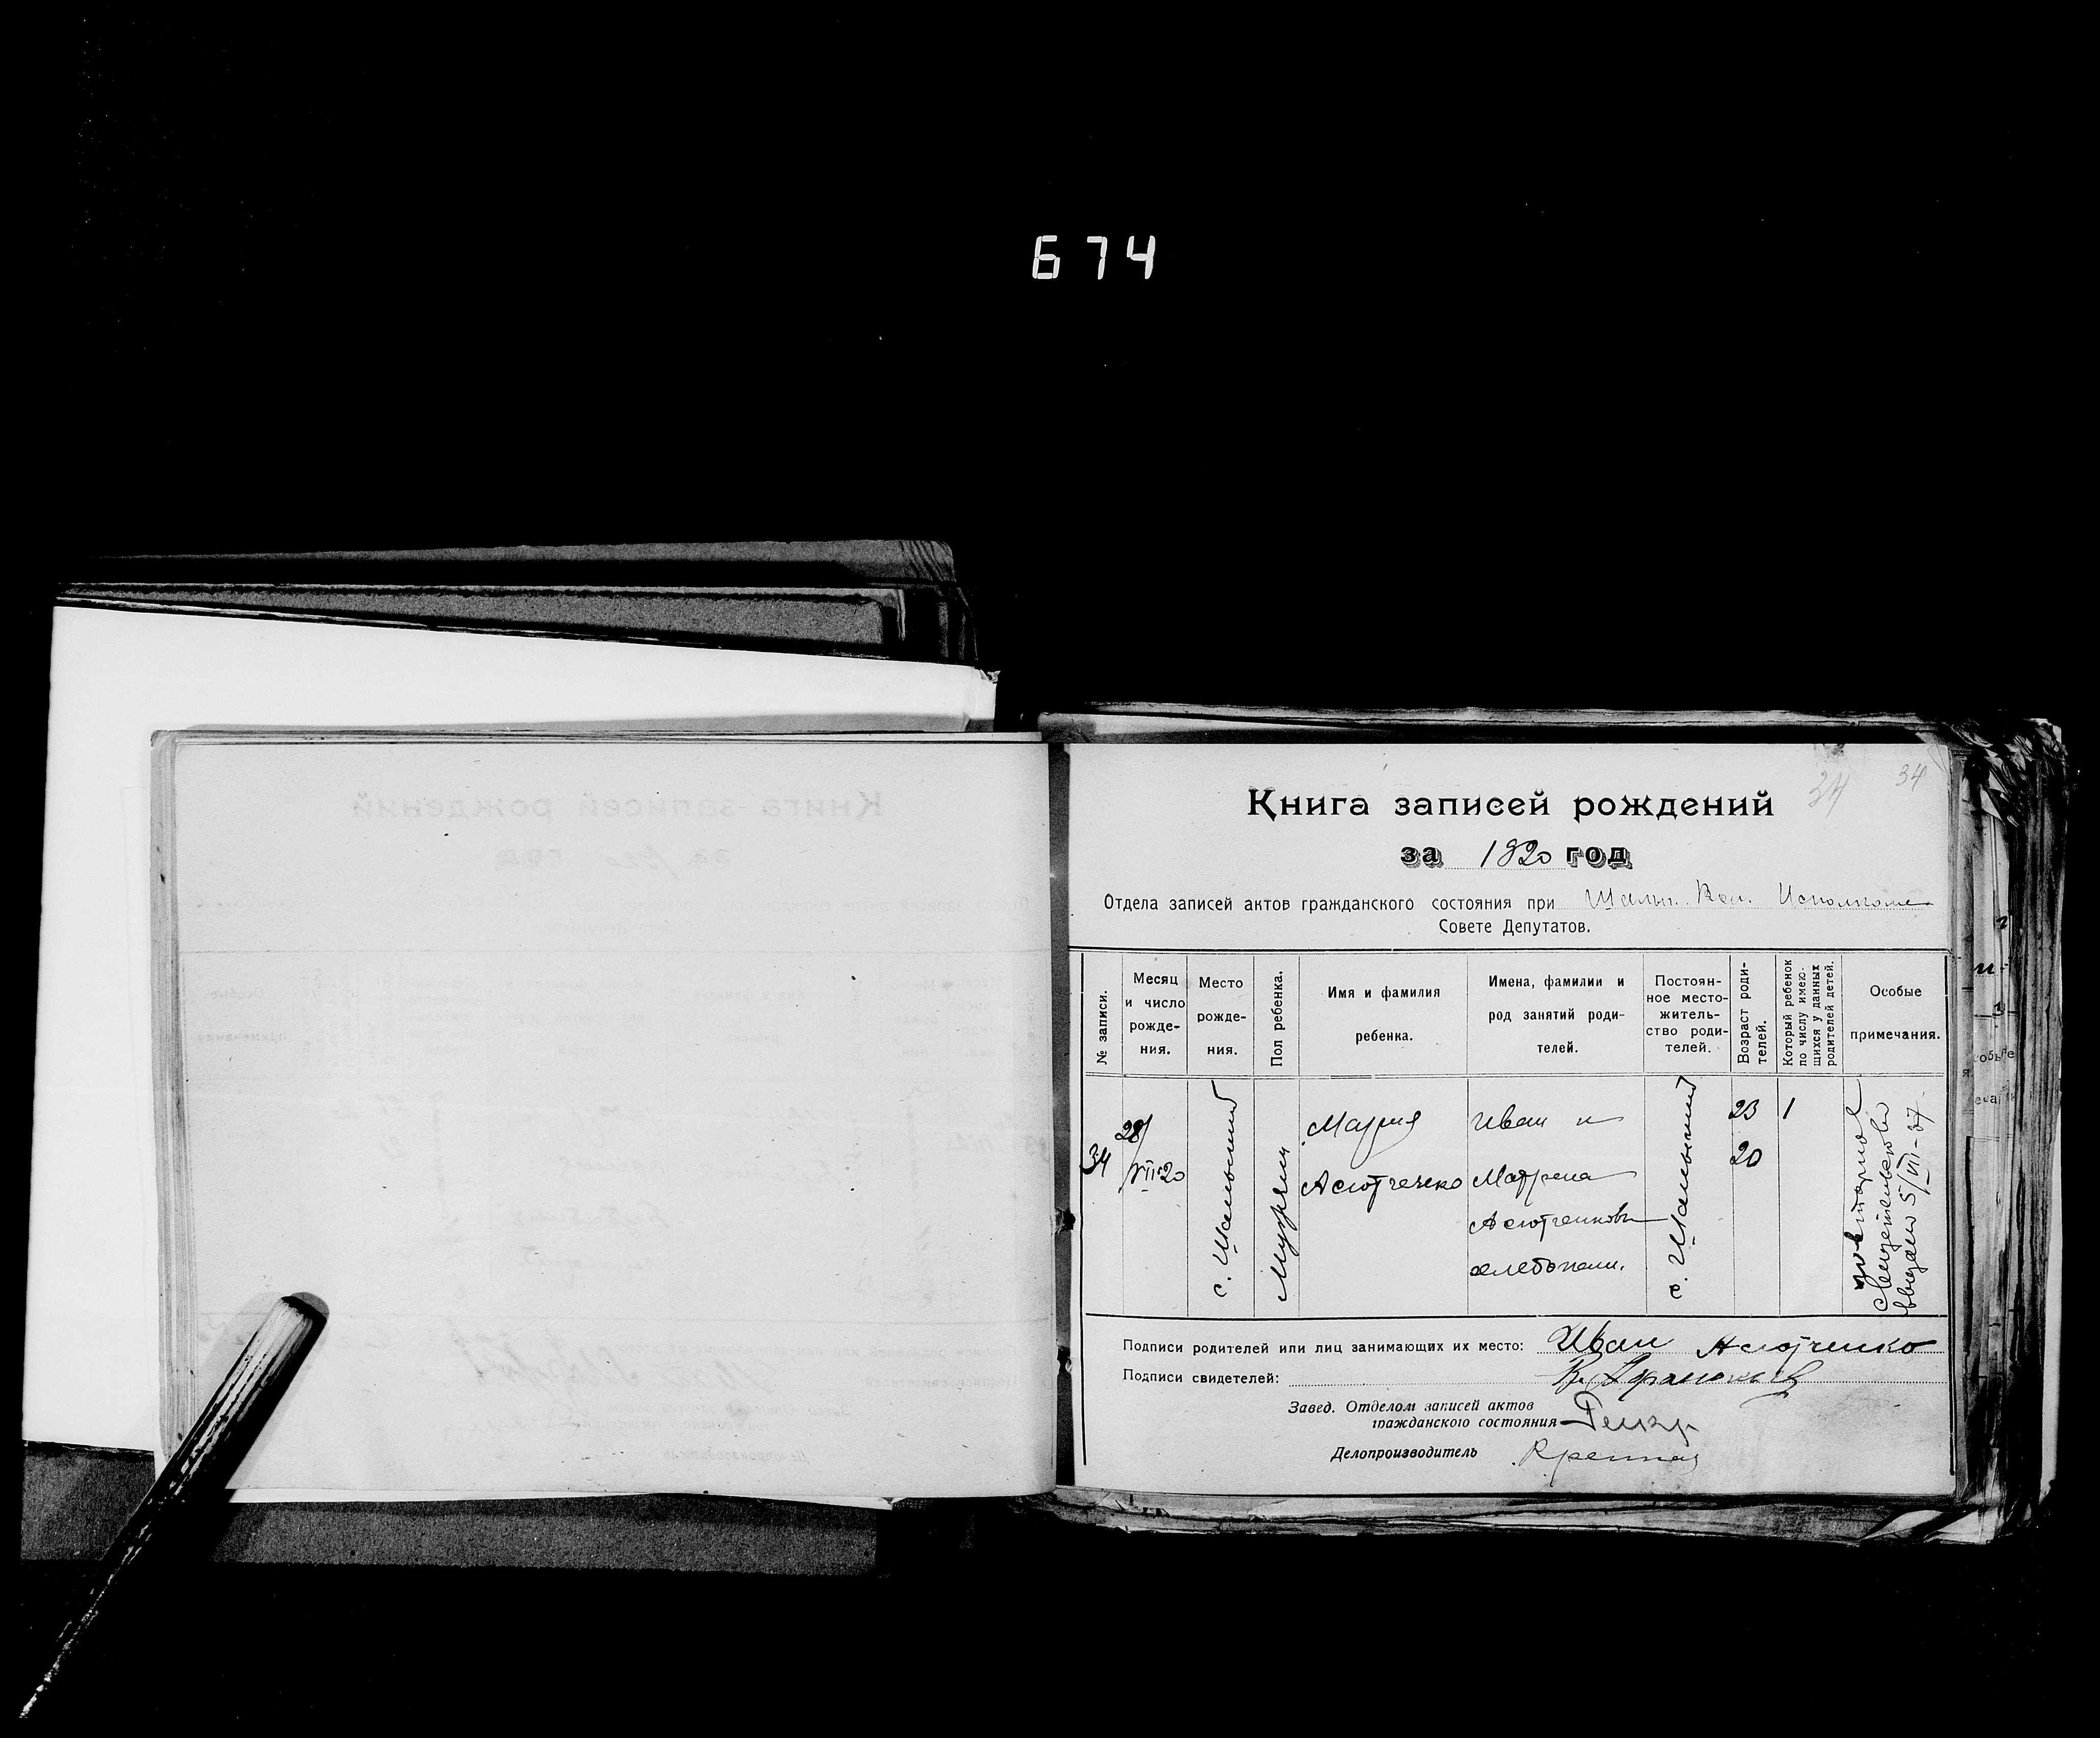 674
34
34
Книга записей рождений
за 1920 год
Отдела записей актов гражданского состояния при Шалын. Вол. Исполкоме
Совете Депутатов.
№ записи.
Месяц и число рожде- ния.
Место рожде- ния.
Пол ребенка.
Имя и фамилия ребенка.
Имена, фамилии и род занятий роди- телей.
Постоян- ное место- житель- ство роди- телей.
Возраст роди- телей.
Который ребенок по числу имею- щихся у данных родителей детей.
Особые примечания.
34
28/
VII-20
с.
Мария
Асютченко
Иван и
Матрена
Асютченковы
хлебопаш.
с.
23
20
1
повторное
свидетельство
выдано 5/VII-37
Подписи родителей или лиц занимающих их место: Иван Асютченко
Подписи свидетелей:
Завед. Отделом записей актов
гражданского состояния
Делопроизводитель